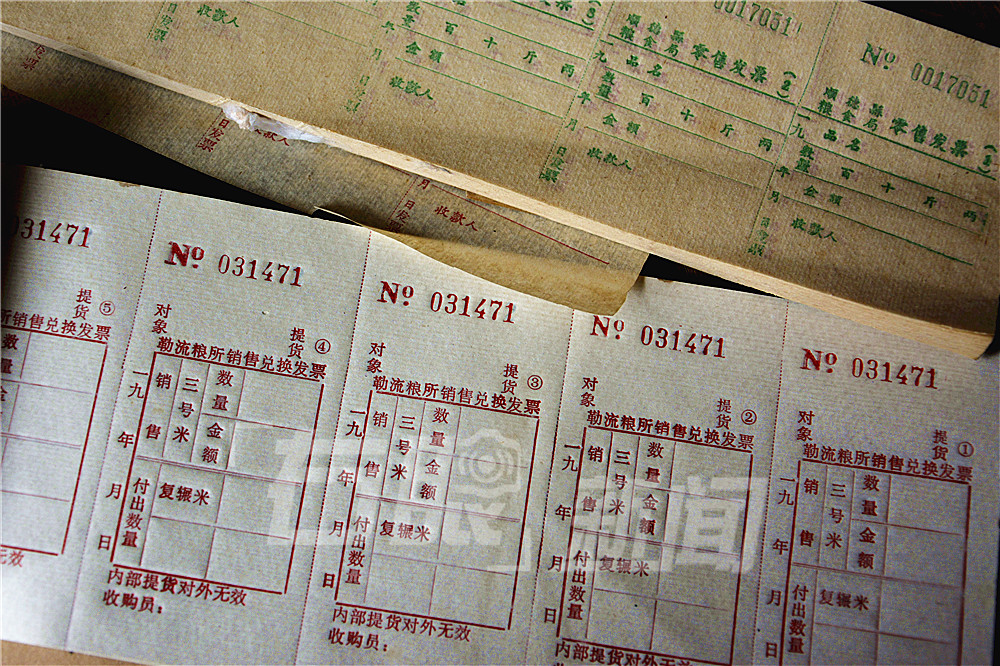 0017051
顺德县粮食局 零售发票 (2)
一九 年 月 日发票
品名
数量 百 十 斤 两
金额
收款人
№ 0017051
顺德县粮食局 零售发票 (2)
一九 年 月 日发票
品名
数量 百 十 斤 两
金额
收款人
数量 百 十 斤 两
金额
年
收款人
收款人
日发票
收款人
月 日发票
收款人
031471
提货⑤
所销售兑换发票
数
№ 031471
对象
提货④
勒流粮所销售兑换发票
一九 年 月 日
销售 三号米 数量
金额
付出数量 复辗米
内部提货对外无效
收购员：
№ 031471
对象
提货③
勒流粮所销售兑换发票
一九 年 月 日
销售 三号米 数量
金额
付出数量 复辗米
内部提货对外无效
收购员：
№ 031471
对象
提货②
勒流粮所销售兑换发票
一九 年 月 日
销售 三号米 数量
金额
付出数量 复辗米
内部提货对外无效
№ 031471
对象
提货①
勒流粮所销售兑换发票
一九 年 月 日
销售 三号米 数量
金额
付出数量 复辗米